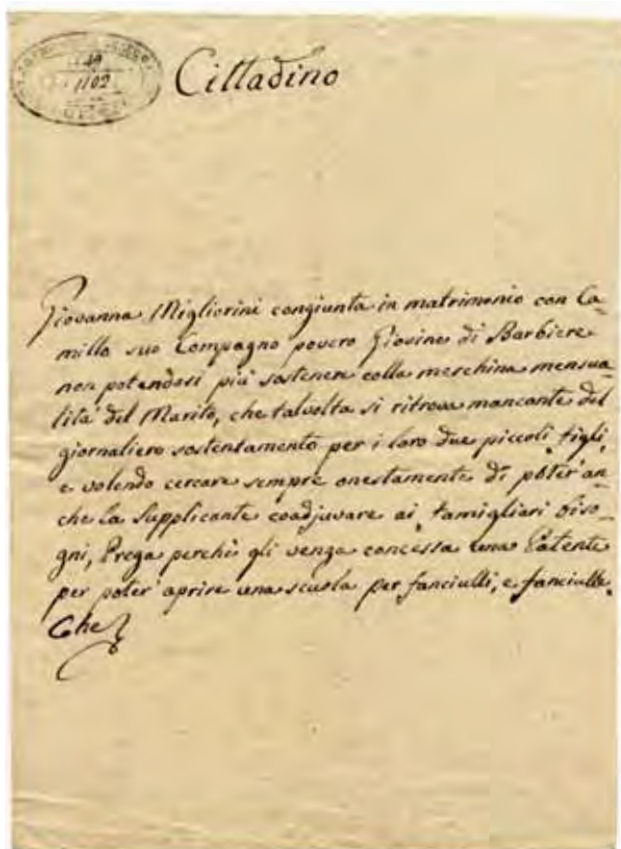 1102
Cittadino
Giovanna Migliorini congiunta in matrimonio con Ca=
millo suo Compagno povero Giovine di Barbiere
non potendosi più sostenere colla meschina mensua=
lità del Marito, che talvolta si ritrova mancante del
giornaliero sostentamento per i loro due piccoli figli,
e volendo cercare sempre onestamente di poter' an=
che la Supplicante coadjuvare ai famigliari biso=
gni, Prega perchè gli venga concessa una Patente
per poter' aprire una scuola per fanciulli, e fanciulle.
Che